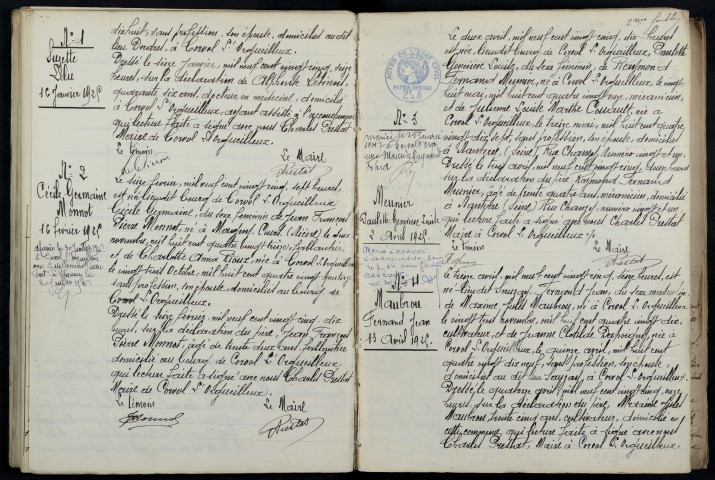 N° 1
Suzette
Blu
16 Janvier 1925
dixhuit, sans profession, son épouse, domiciliés au dit
lieu Dondres, à Corvol L'Orgueilleux.
Dressé le seize Janvier, mil neuf cent vingt cinq, seize
heures, sur la déclaration de Alphonse
quarante six ans, docteur en médecine, domicilié
à Corvol L'Orgueilleux, ayant assisté à l'accouchement
qui lecture faite a signé avec nous Charles Prestat
Maire de Corvol L'Orgueilleux.
Le témoin Le Maire
Prestat
N° 2
Cécile Germaine
Monnot
16 février 1925
Le seize février, mil neuf cent vingt cinq, sept heures,
est née lieudit Bourg de Corvol L'Orgueilleux
Cécile Germaine, du sexe féminin de Jean François
Pierre Monnot, né à Marigny (Nièvre) le deux
novembre, mil huit cent quatre vingt treize, ferblantier
et de Charlotte Anna Tioux, née à Corvol L'Orgueilleux
le vingt trois Octobre, mil huit cent quatre vingt
sans profession, son épouse, domiciliés au bourg de
Corvol L'Orgueilleux.
Dressé le seize février, mil neuf cent vingt cinq, dix
heures, sur la déclaration du père, Jean François
Pierre Monnot, âgé de trente deux ans, ferblantier
domicilié au bourg de Corvol L'Orgueilleux
qui lecture faite a signé avec nous Charles Prestat
Maire de Corvol L'Orgueilleux.
Le témoin Le Maire
Monnot Prestat
ACTES DE L'ETAT CIVIL
PAPIER SPECIAL
N° 3
Meunier
Paulette Geneviève Louise
2 Avril 1925
Le deux avril, mil neuf cent vingt cinq, dix heures
est née, lieudit Bourg de Corvol L'Orgueilleux, Paulette
Geneviève Louise, du sexe féminin, de Raymond
Fernand Meunier, né à Corvol L'Orgueilleux, le vingt
huit mai, mil huit cent quatre vingt onze, mécanicien,
et de Julienne Louise Marthe née à
Corvol L'Orgueilleux, le treize mai, mil huit cent quatre
vingt dix sept, sans profession, son épouse, domiciliés
à Nanterre (Seine), Rue Chanzy, numéro vingt et un.
Dressé le avril, mil neuf cent vingt cinq, heures
sur la déclaration du père Raymond Fernand
Meunier, âgé de trente quatre ans, mécanicien, domicilié
à Nanterre (Seine) Rue Chanzy, numéro vingt et un
qui lecture faite a signé avec nous Charles Prestat
Maire de Corvol L'Orgueilleux.
Le témoin Le Maire
Prestat
N° 4
Maubrou
Fernand Jean
13 Avril 1925
Le treize avril, mil neuf cent vingt cinq, seize heures, est
né lieudit Sauzay, Fernand Jean, du sexe masculin
de Maxime Jules Maubrou, né à Corvol L'Orgueilleux
le vingt trois novembre, mil huit cent quatre vingt dix,
cultivateur, et de Jeanne Clotilde née à
Corvol L'Orgueilleux, le quinze avril, mil huit cent
quatre vingt dix neuf, sans profession, son épouse,
domiciliés au dit lieu Sauzay, à Corvol L'Orgueilleux.
Dressé le quatorze avril, mil neuf cent vingt cinq,
heures, sur la déclaration du père, Maxime Jules
Maubrou, trente cinq ans, cultivateur, domicilié en
cette commune, qui lecture faite a signé avec nous
Charles Prestat, Maire à Corvol L'Orgueilleux.